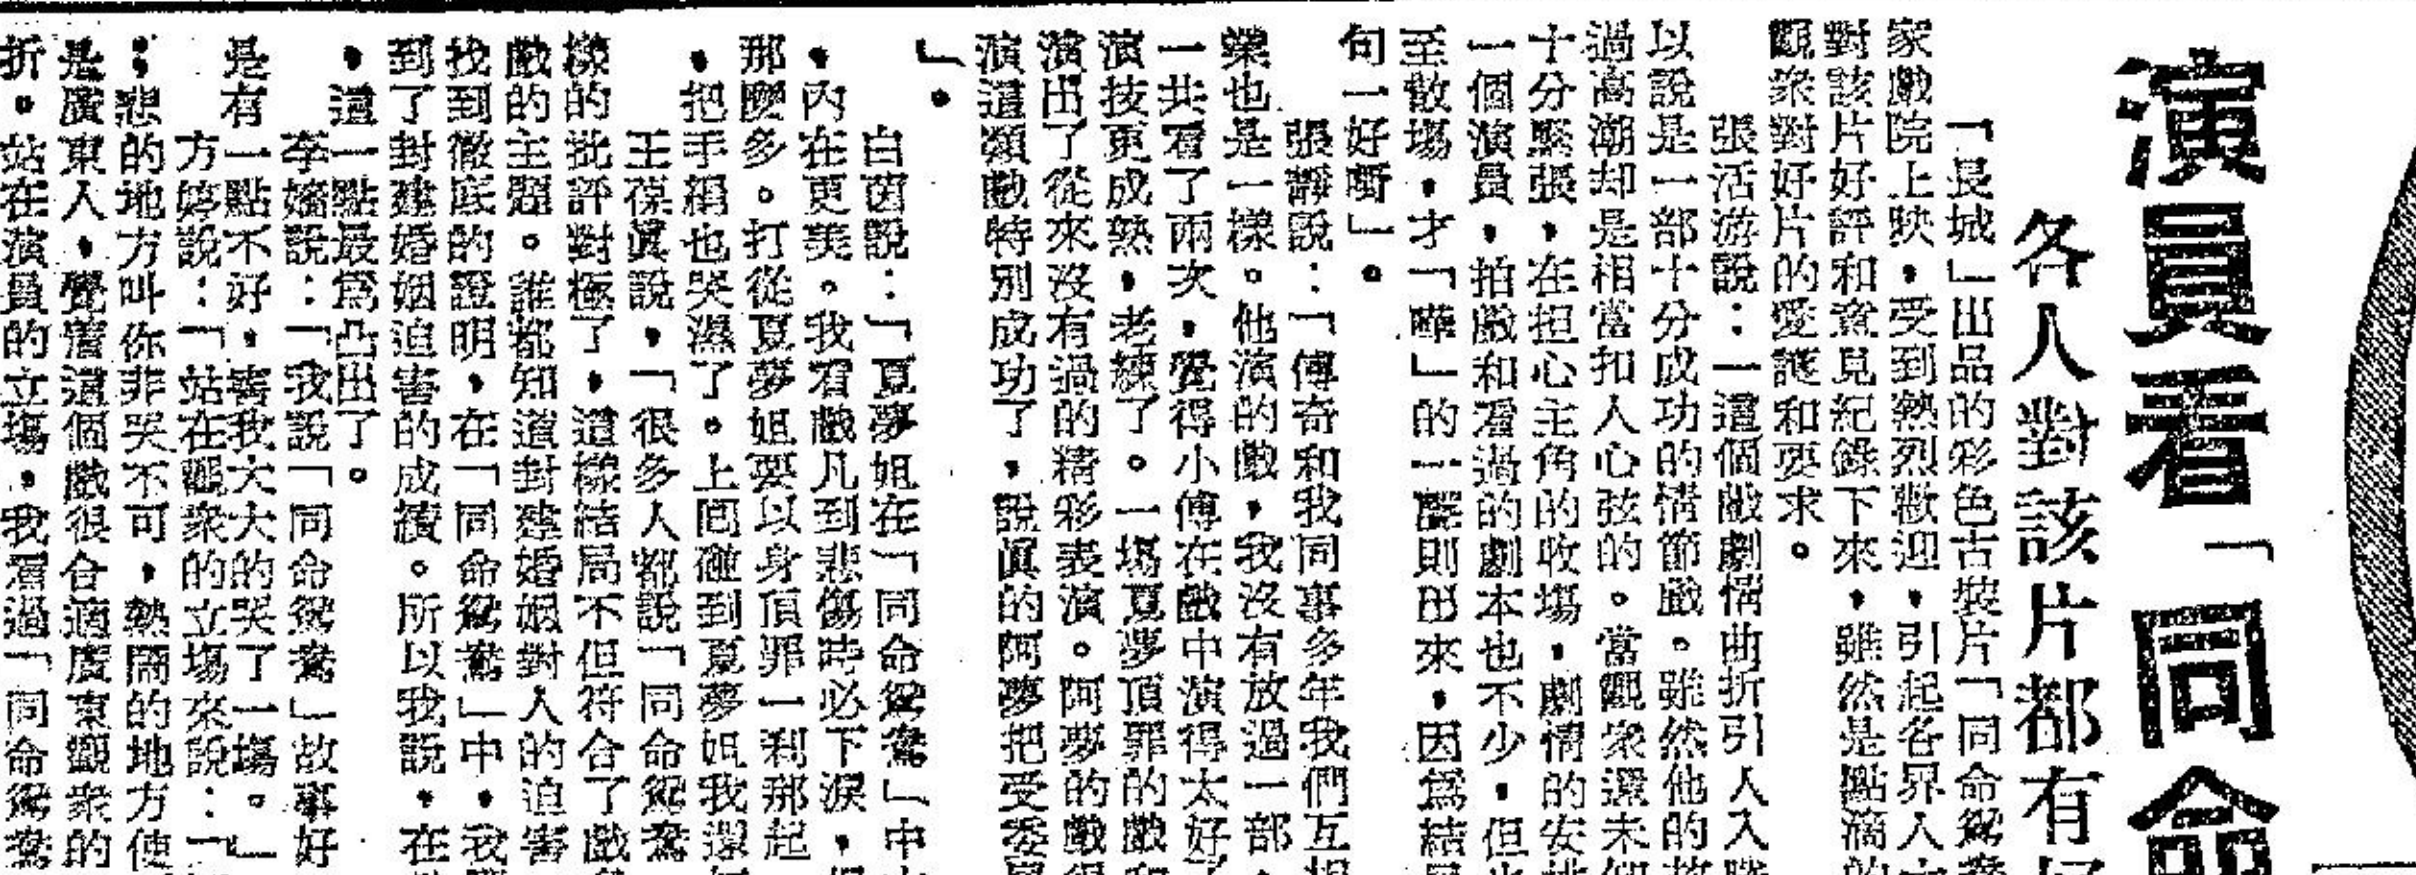 演員看「同命
各人對該片都有
「長城」出品的彩色古裝片「同命鴛鴦
家戲院上映，受到熱烈歡迎，引起各界人
對該片好評和意見紀錄下來，雖然是點滴的
觀衆對好片的愛護和要求。
張活游說：一這個戲劇情曲折引人入勝
以說是一部十分成功的情節戲。雖然他的故
過高潮却是相當扣人心弦的。當觀衆還未
十分緊張，在担心主角的收場，劇情的安排
一個演員，拍戲和看過的劇本也不少，但
至散場，才「嘩」的一聲則出來，因爲結
句一好嘢」。
張錚說：「傅奇和我同事多年我們互相
業也是一樣。他演的戲，我沒有放過一部，
一共看了兩次，覺得小傅在戲中演得太好了
演技更成熟，老練了。一塲夏夢頂罪的戲和
演出了從來沒有過的精彩表演。阿夢的戲很
演這類戲特別成功了，說眞的阿夢把受委屈
」。
白茵說：「夏夢姐在「同命鴛鴦」中
，內在更美。我看戲凡到悲傷時必下淚，
那麼多。打從夏夢姐要以身頂罪一刹那起
，把手絹也哭濕了。上囘碰到夏夢姐我還
王葆眞說，「很多人都說「同命鴛鴦
樣的批評對極了，這樣結局不但符合了戲
戲的主題。誰都知道封建婚姻對人的迫害
找到徹底的證明，在「同命鴛鴦」中，我
到了封建婚姻迫害的成績。所以我說，在
，這一點最爲凸出了。
李嬙說：「我說「同命鴛鴦」故事好
是有一點不好，害我大大的哭了一塲。」
方婷說：「站在觀衆的立塲來說：一
；悲的地方叫你非哭不可，熱鬧的地方使
是廣東人，覺着這個戲很合適廣東觀衆的
折。站在演員的立塲，我看過「同命鴛鴦